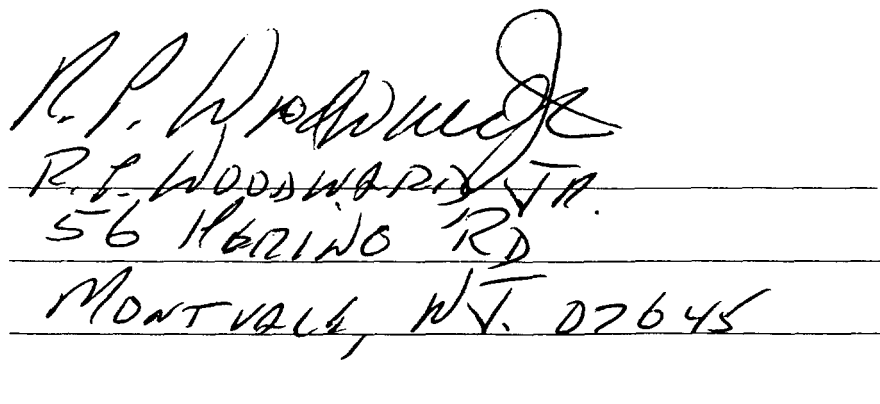 R. P. Woodward Jr
R. P. WOODWARD JR.
56 MERINO RD
MONTVALE, NJ. 07645